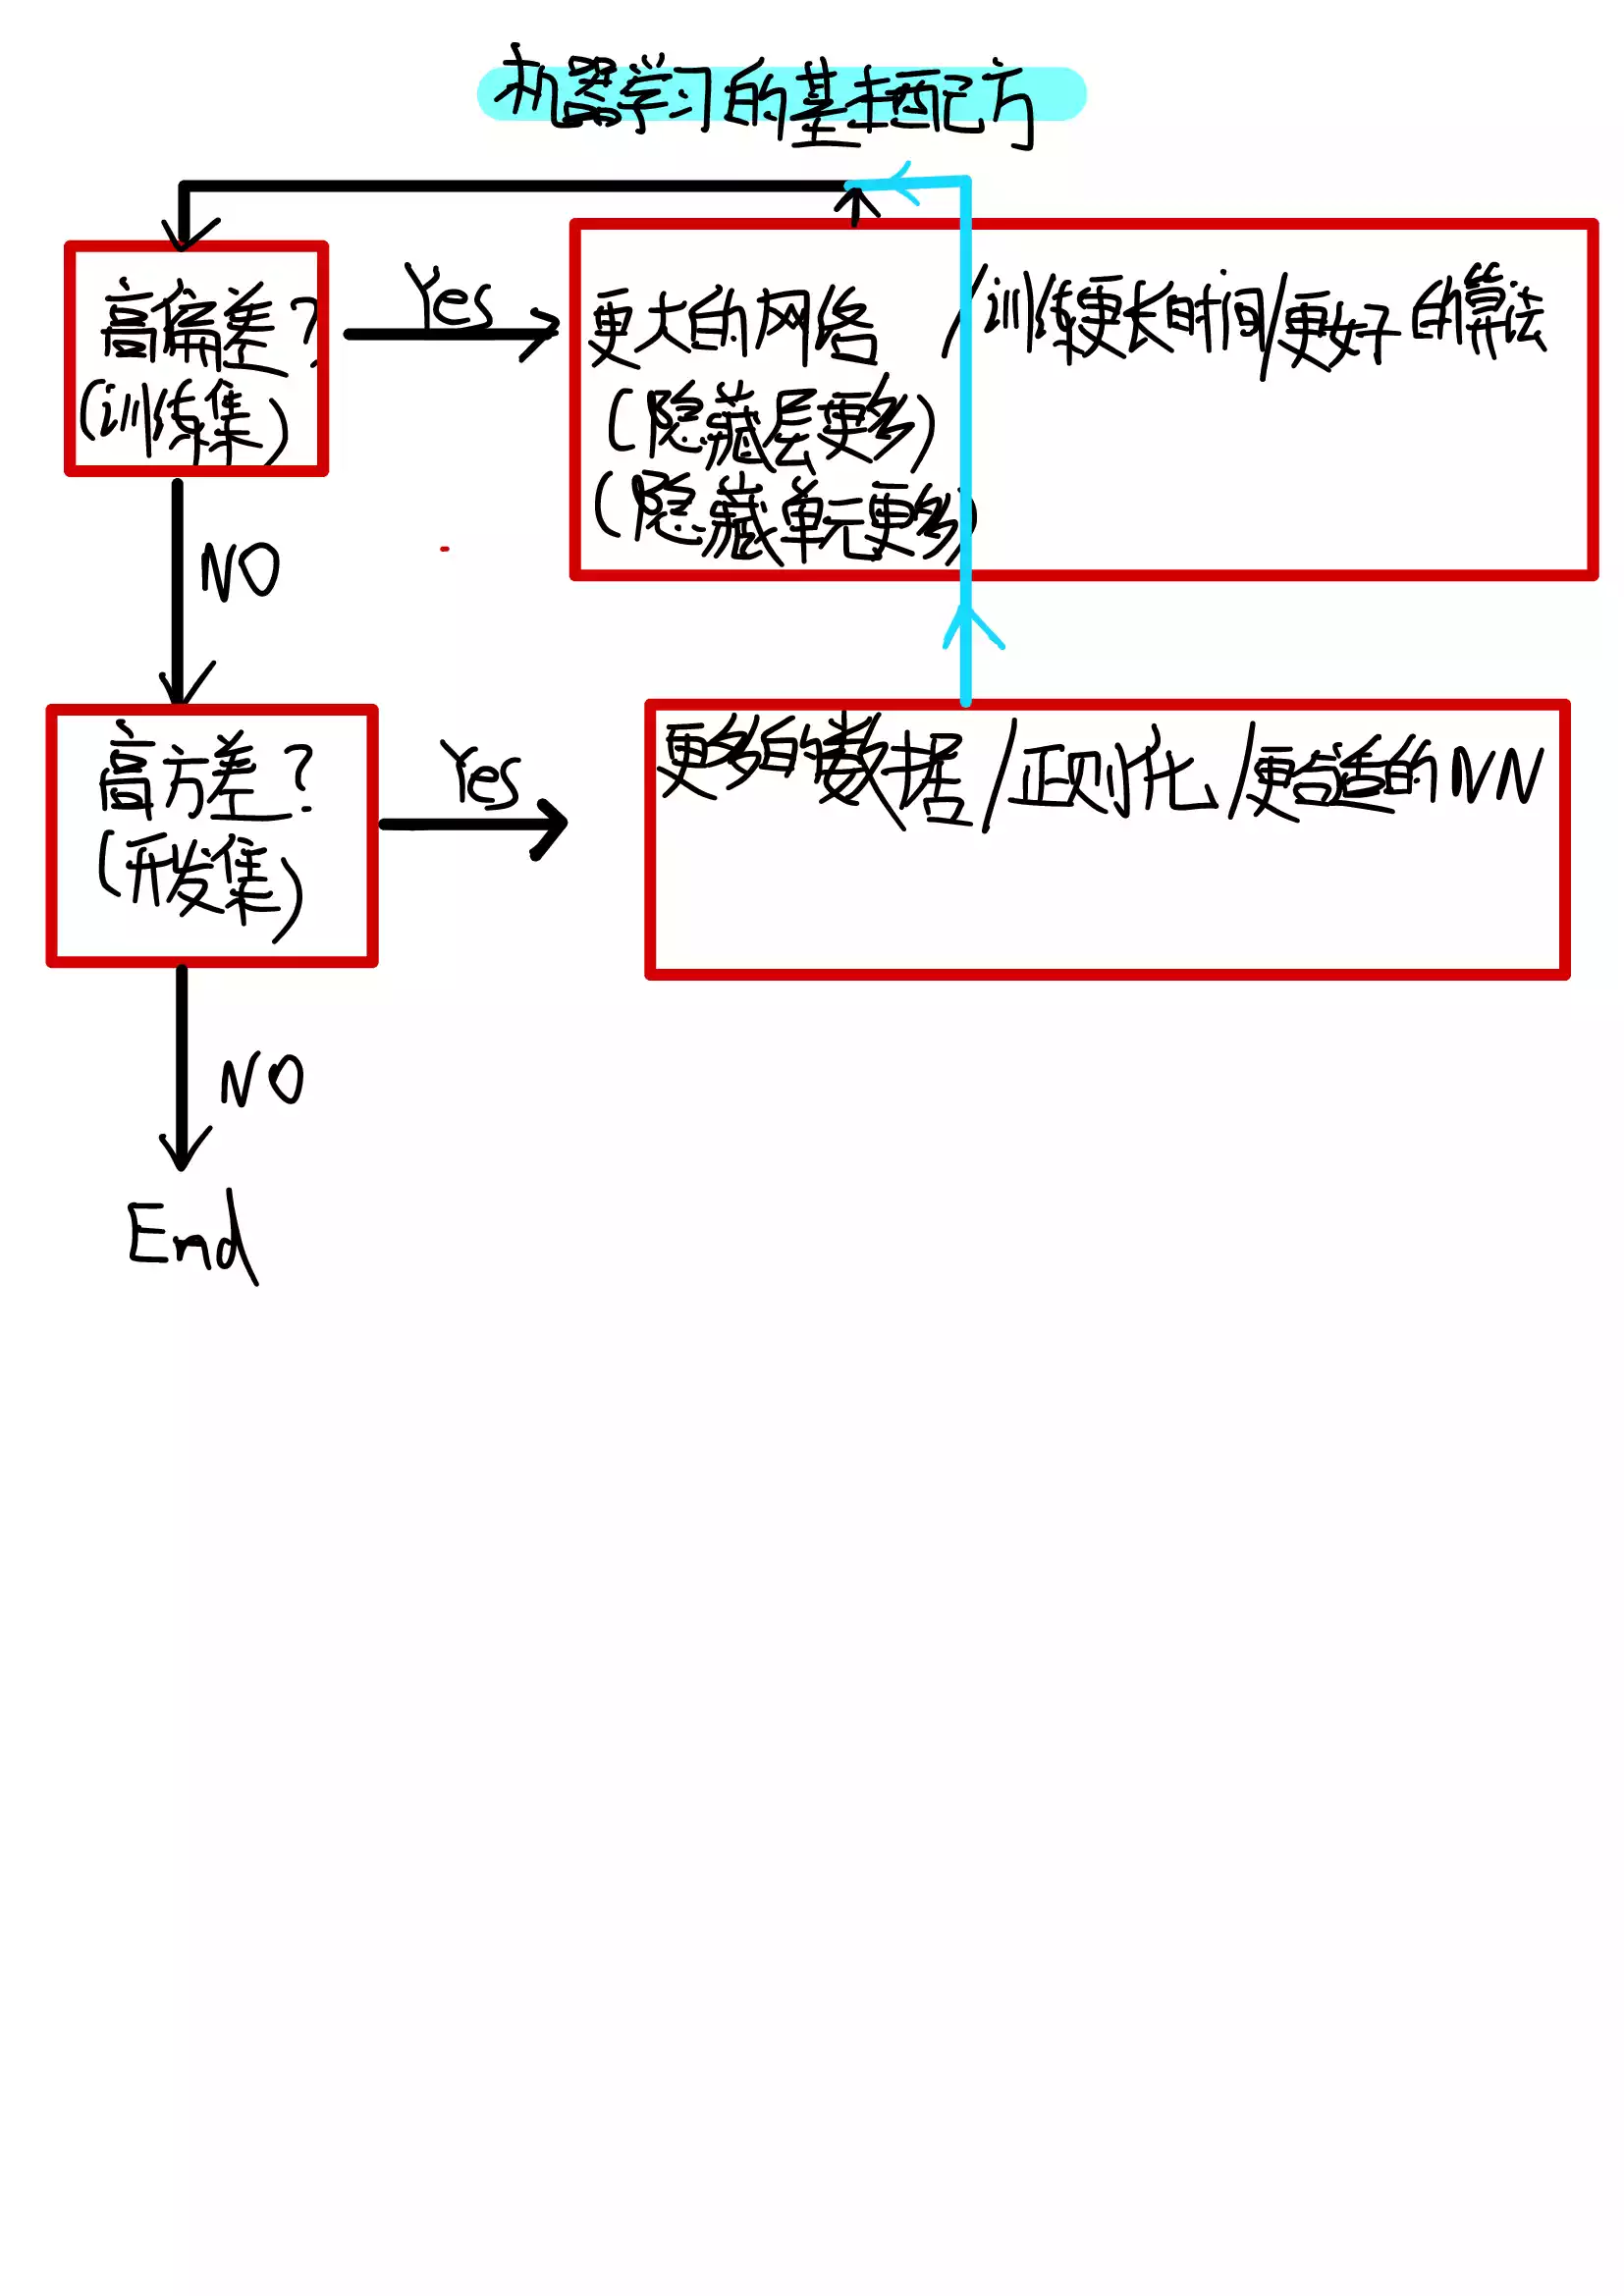 机器学习的基本配方
高偏差?
(训练集)
Yes
更大的网络/训练更长时间/更好的算法
(隐藏层更多)
(隐藏单元更多)
NO
高方差?
(开发集)
Yes
更多的数据/正则化/更合适的NN
NO
End